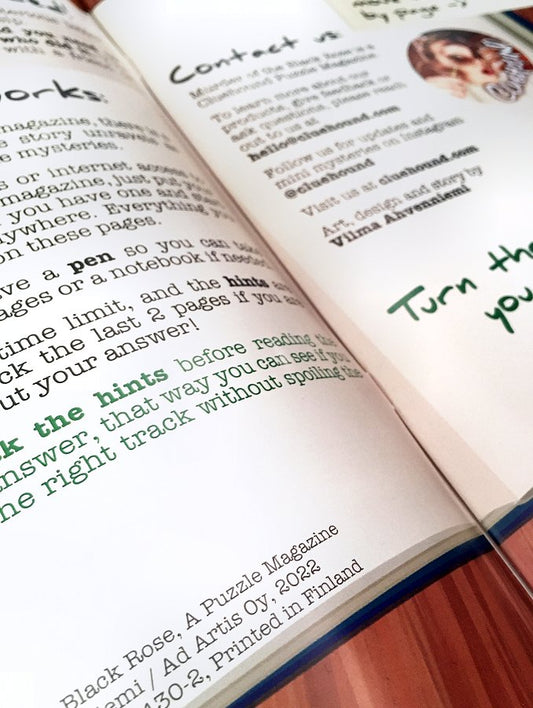 works:
magazine, there is a
story unravel as
mysteries.
s or internet access
magazine, just put you
you have one and start
nywhere. Everything you
on these pages.
ve a pen so you can take
ages or a notebook if needed
time limit, and the hints are
ck the last 2 pages if you are
ut your answer!
k the hints before reading the
answer, that way you can see if you
he right track without spoiling the
Black Rose, A Puzzle Magazine
iemi / Ad Artis Oy, 2022
130-2, Printed in Finland
by page :-)
Contact us:
Murder of the Black Rose is a
Cluehound Puzzle Magazine
To learn more about our
products, give feedback or
ask questions, please reach
out to us at
hello@cluehound.com
Follow us for updates and
mini mysteries on instagram
@cluehound
Visit us at cluehound.com
Art, design and story by
Vilma Ahvenniemi
Turn the
you